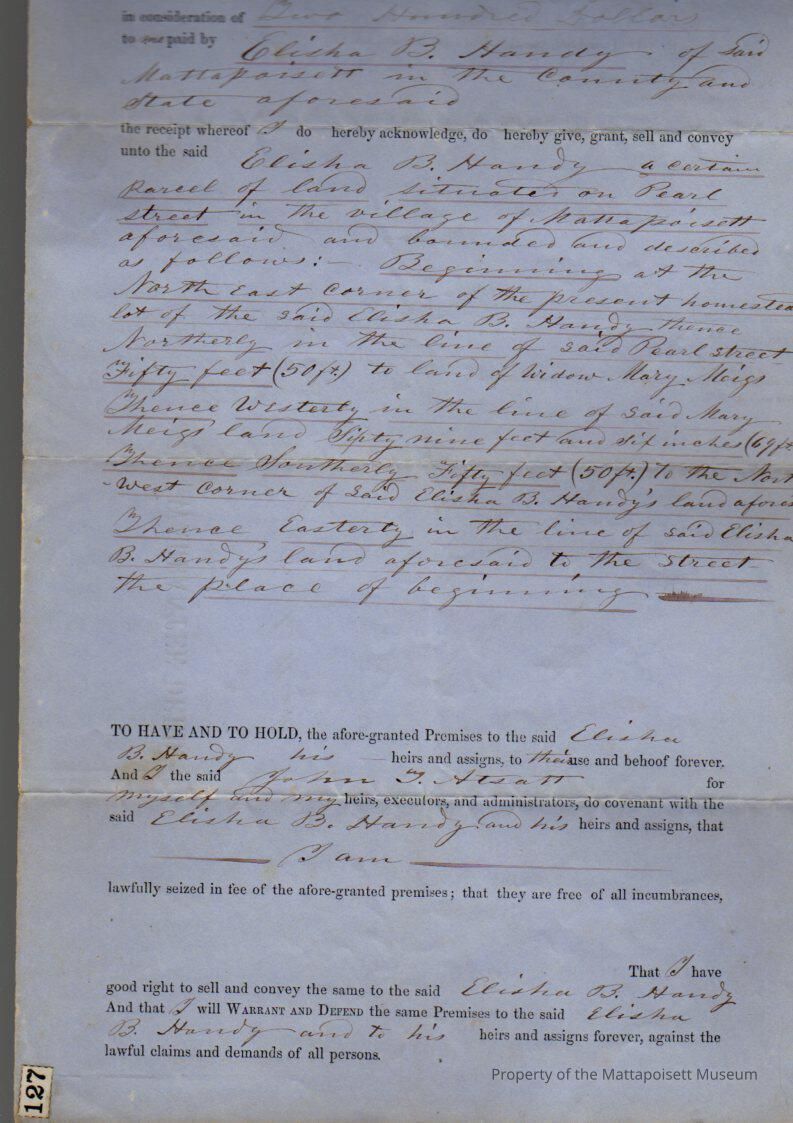 in consideration of Two Hundred Dollars
to me paid by
Elisha B. Handy of said
Mattapoisett in the County and
State aforesaid
the receipt whereof I do hereby acknowledge, do hereby give, grant, sell and convey
unto the said
Elisha B. Handy a certain
parcel of land situated on Pearl
street in the village of Mattapoisett
aforesaid and bounded and described
as follows:- Beginning at the
North East Corner of the present homestea
lot of the said Elisha B. Handy thence
Northerly in the line of said Pearl street
Fifty feet (50ft.) to land of Widow Mary Meigs
Thence Westerly in the line of said Mary
Meigs' land nine feet and six inches (69ft
Thence Southerly Fifty feet (50ft.) to the Nort
West corner of said Elisha B. Handy's land afores
Thence Easterly in the line of said Elisha
B. Handy's land aforesaid to the Street
the place of beginning
TO HAVE AND TO HOLD, the afore-granted Premises to the said Elisha
B. Handy his heirs and assigns, to their use and behoof forever.
And I the said John T. Atsatt for
myself and my heirs, executors, and administrators, do covenant with the
said Elisha B. Handy and his heirs and assigns, that
I am
lawfully seized in fee of the afore-granted premises; that they are free of all incumbrances,
That I have
good right to sell and convey the same to the said Elisha B. Handy
And that I will WARRANT AND DEFEND the same Premises to the said Elisha
B. Handy and to his heirs and assigns forever, against the
lawful claims and demands of all persons.
127
Property of the Mattapoisett Museum